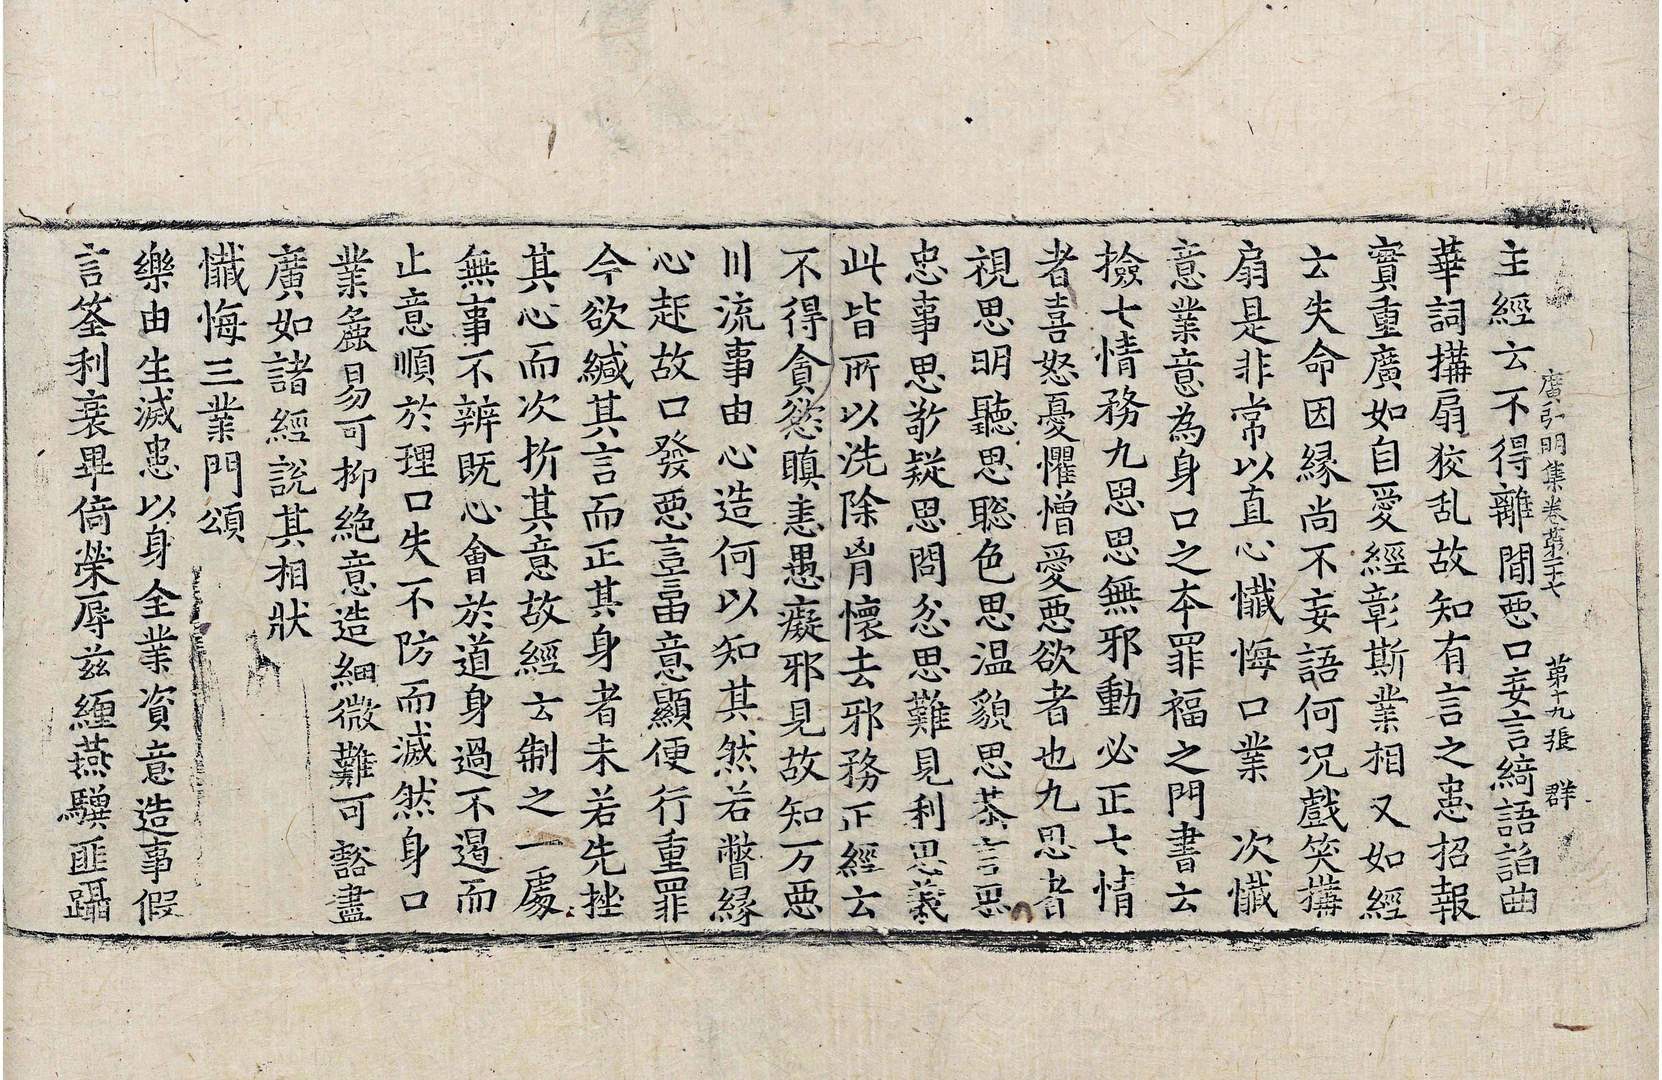 廣弘明集卷第二十七　第十九張　群
主經云不得離間惡口妄言綺語謟曲
華詞搆扇狡乱故知有言之患招報
實重廣如自愛經彰斯業相又如經
云失命因縁尚不妄語何况戲笑搆
扇是非常以直心懺悔口業　次懺
意業意為身口之本罪福之門書云
撿七情務九思思無邪動必正七情
者喜怒憂懼憎愛惡欲者也九思者
視思明聽思聡色思温貌思恭言思
忠事思敬疑思問忿思難見利思義
此皆所以洗除胷懷去邪務正經云
不得貪慾瞋恚愚癡邪見故知万惡
川流事由心造何以知其然若瞥縁
心起故口發惡言言由意顯便行重罪
今欲緘其言而正其身者未若先挫
其心而次折其意故經云制之一處
無事不辨既心會於道身過不遏而
止意順於理口失不防而滅然身口
業麁易可抑絶意造細微難可豁盡
廣如諸經說其相狀
懺悔三業門頌
樂由生滅患以身全業資意造事假
言筌利衰畢倚榮辱兹纏燕驥匪躡